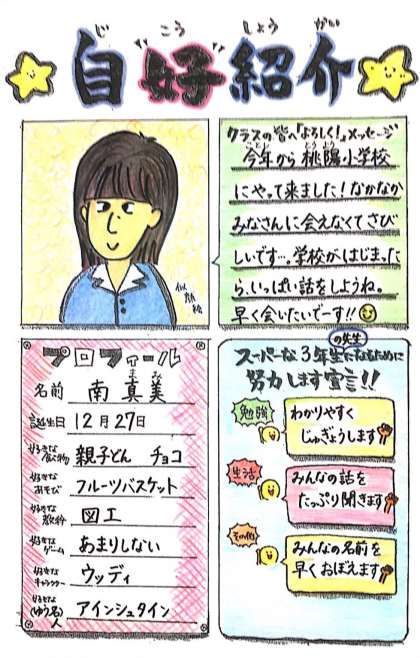 じ こう しょう かい
自"好"紹介
似顔絵
クラスの皆へ「よろしく!」メッセージ
ことし とうよう
今年から桃陽小学校
にやって来ました!なかなか
みなさんに会えなくてさび
しいです…。学校がはじまった
ら、いっぱい話をしようね。
早く会いたいでーす!!
プロフィール
まみ
名前 南 真美
誕生日 12月27日
好きな食物 親子どん チョコ
好きなあそび フルーツバスケット
好きな教科 図工
好きなゲーム あまりしない
好きなキャラクター ウッディ
好きな(ゆう名)人 アインシュタイン
の先生
スーパーな3年生になるために
努力します宣言!!
勉強
わかりやすく
じゅぎょうします
生活
みんなの話を
たっぷり聞きます
その他
みんなの名前を
早くおぼえます